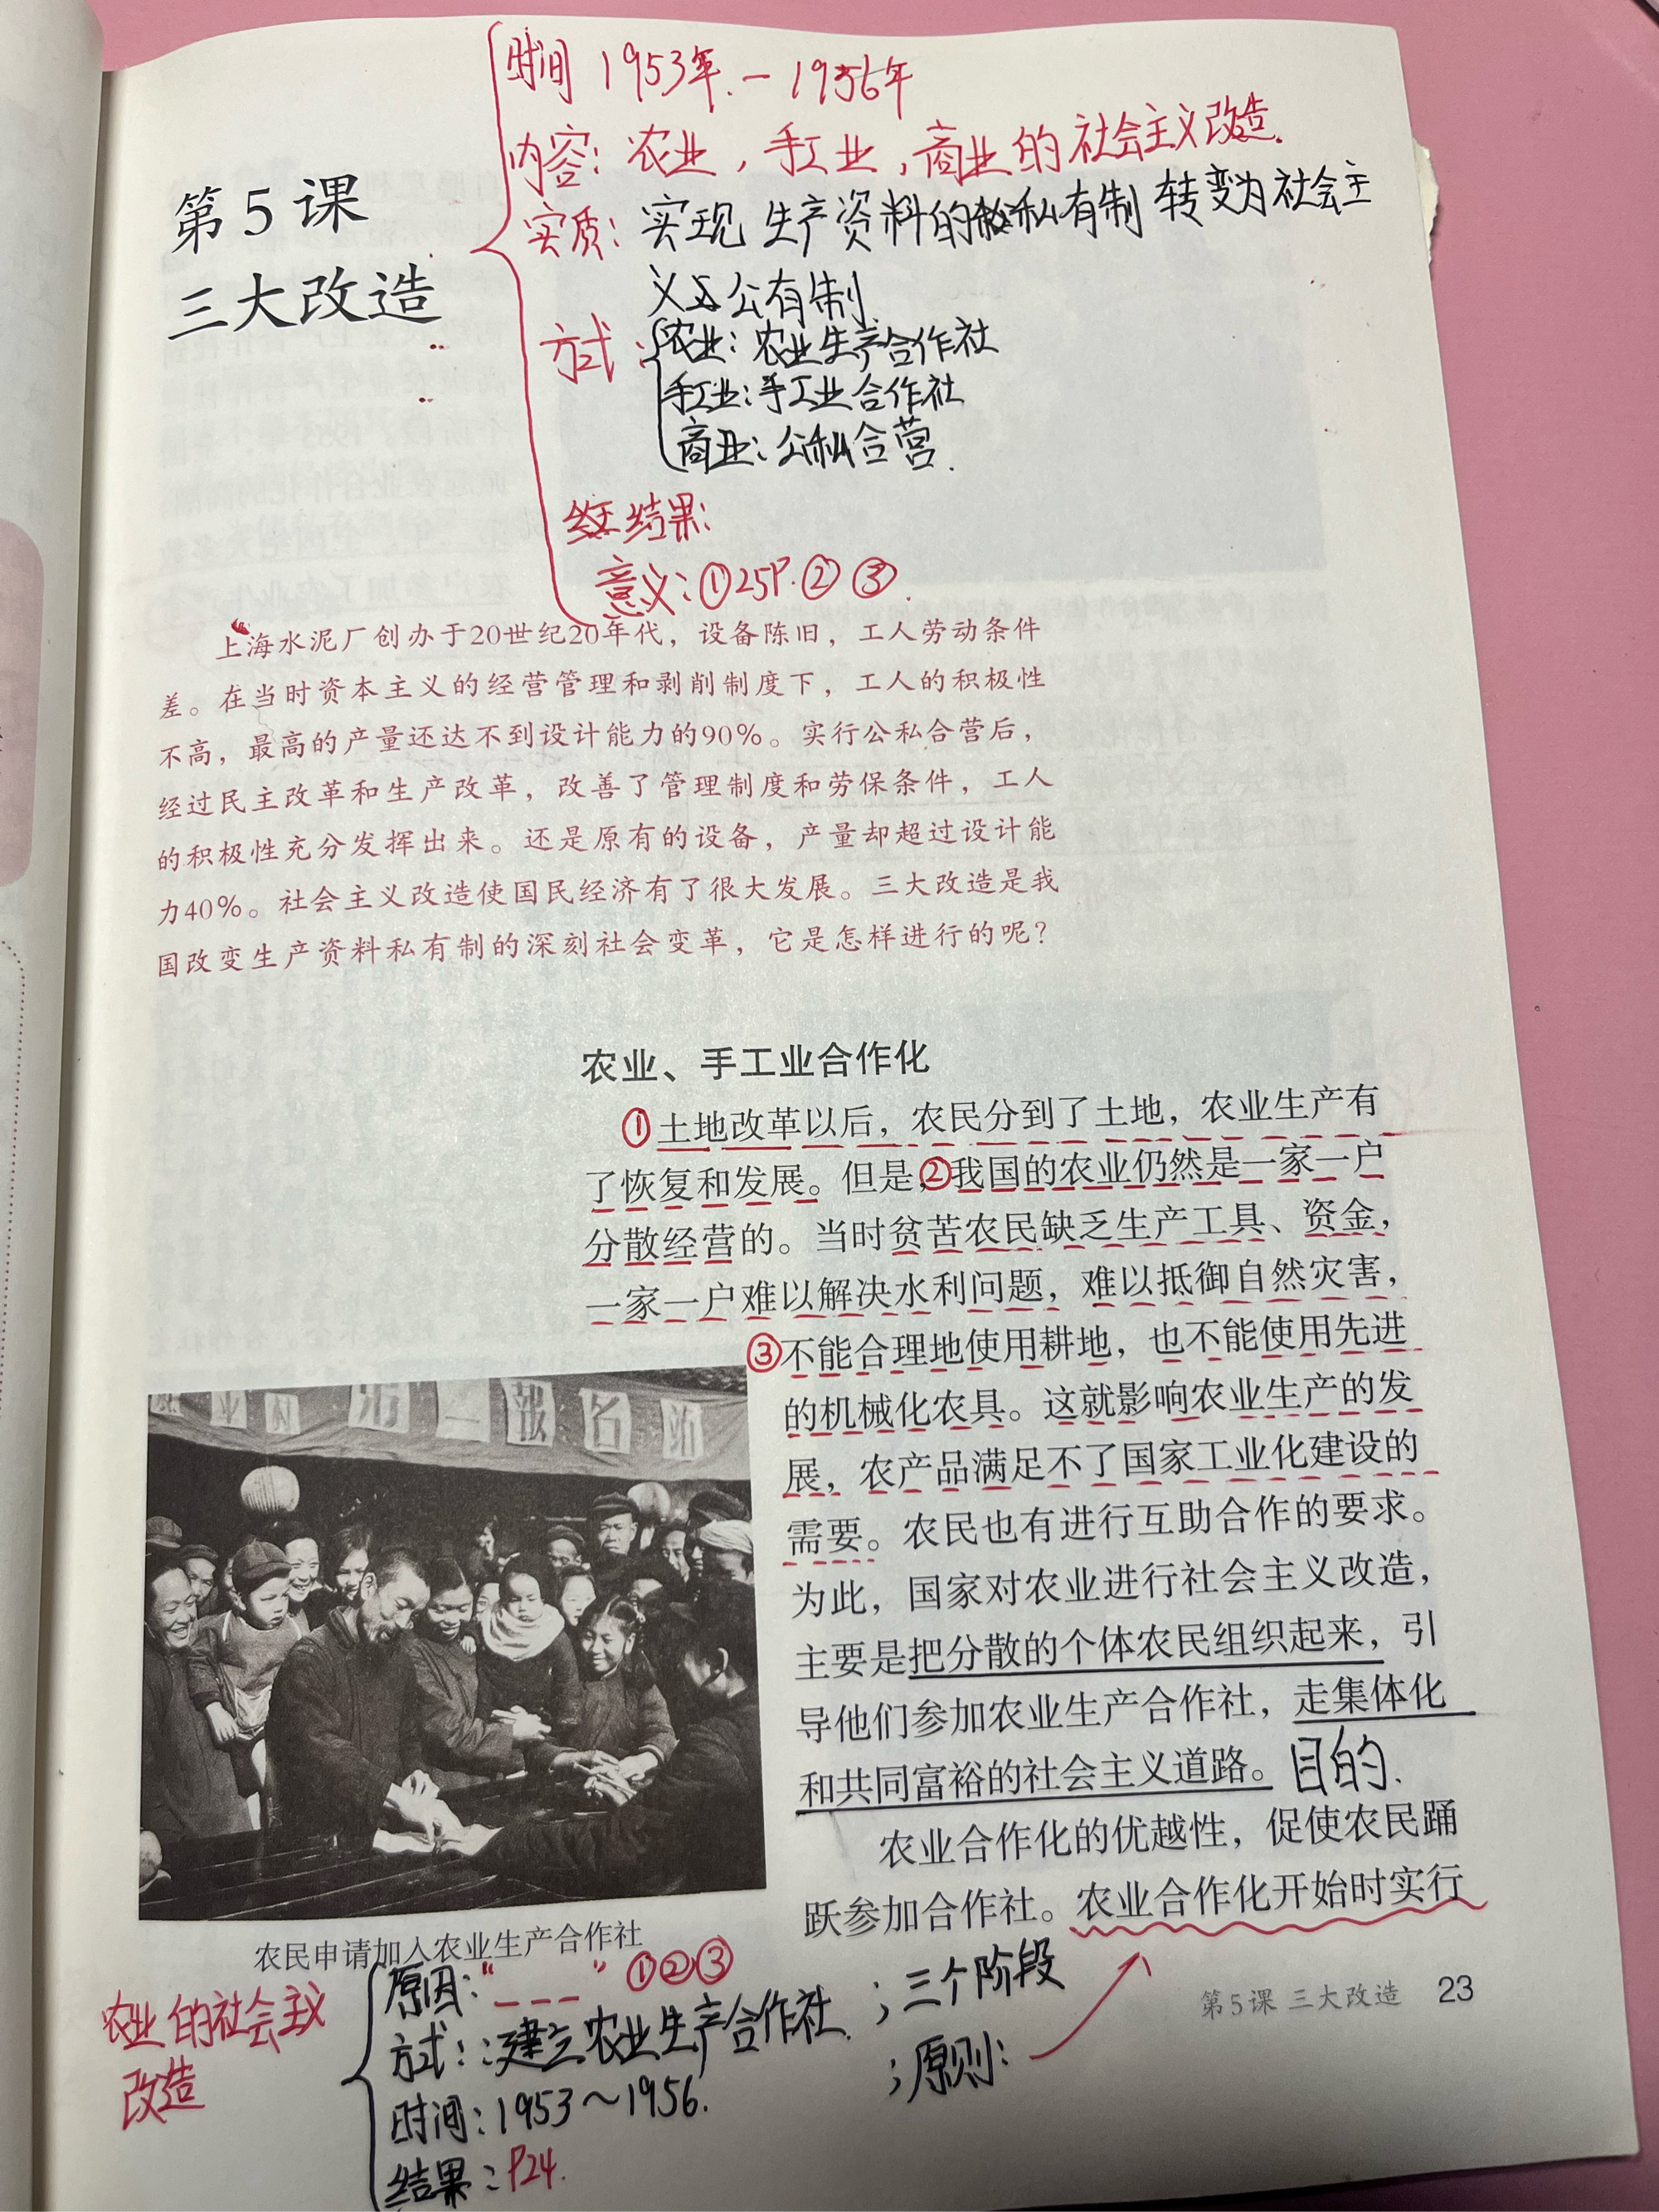 时间 1953年.－1956年
内容：农业，手工业，商业的社会主义改造.
第5课
实质：实现生产资料的私有制转变为社会主
三大改造
义公有制.
方式：
农业：农业生产合作社
手工业：手工业合作社
商业：公私合营.
结果：
意义：①25P.②③.
上海水泥厂创办于20世纪20年代，设备陈旧，工人劳动条件
差。在当时资本主义的经营管理和剥削制度下，工人的积极性
不高，最高的产量还达不到设计能力的90%。实行公私合营后，
经过民主改革和生产改革，改善了管理制度和劳保条件，工人
的积极性充分发挥出来。还是原有的设备，产量却超过设计能
力40%。社会主义改造使国民经济有了很大发展。三大改造是我
国改变生产资料私有制的深刻社会变革，它是怎样进行的呢？
农业、手工业合作化
①土地改革以后，农民分到了土地，农业生产有
了恢复和发展。但是，②我国的农业仍然是一家一户
分散经营的。当时贫苦农民缺乏生产工具、资金，
一家一户难以解决水利问题，难以抵御自然灾害，
③不能合理地使用耕地，也不能使用先进
的机械化农具。这就影响农业生产的发
展，农产品满足不了国家工业化建设的
需要。农民也有进行互助合作的要求。
为此，国家对农业进行社会主义改造，
主要是把分散的个体农民组织起来，引
导他们参加农业生产合作社，走集体化
和共同富裕的社会主义道路。目的.
农业合作化的优越性，促使农民踊
跃参加合作社。农业合作化开始时实行
第一報名站
农民申请加入农业生产合作社
农业的社会主义
改造
原因：“———” ①②③
方式：建立农业生产合作社.；三个阶段
；原则：
时间：1953～1956.
结果：P24.
第5课 三大改造 23